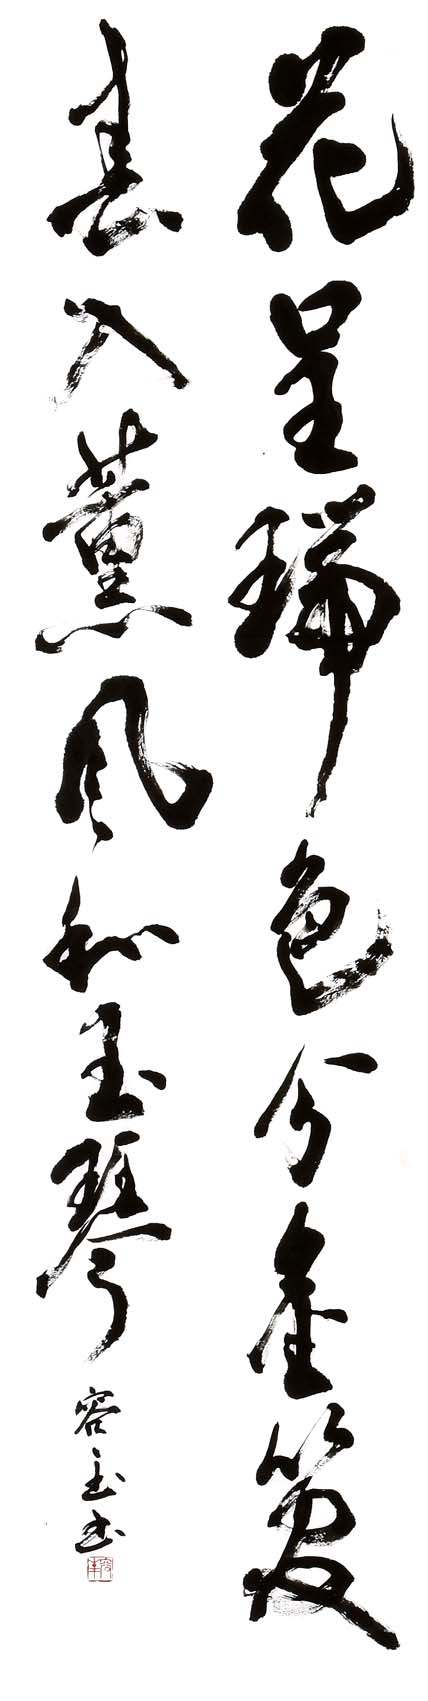 花呈瑞色分金
春入薰風和玉琴
容玉書